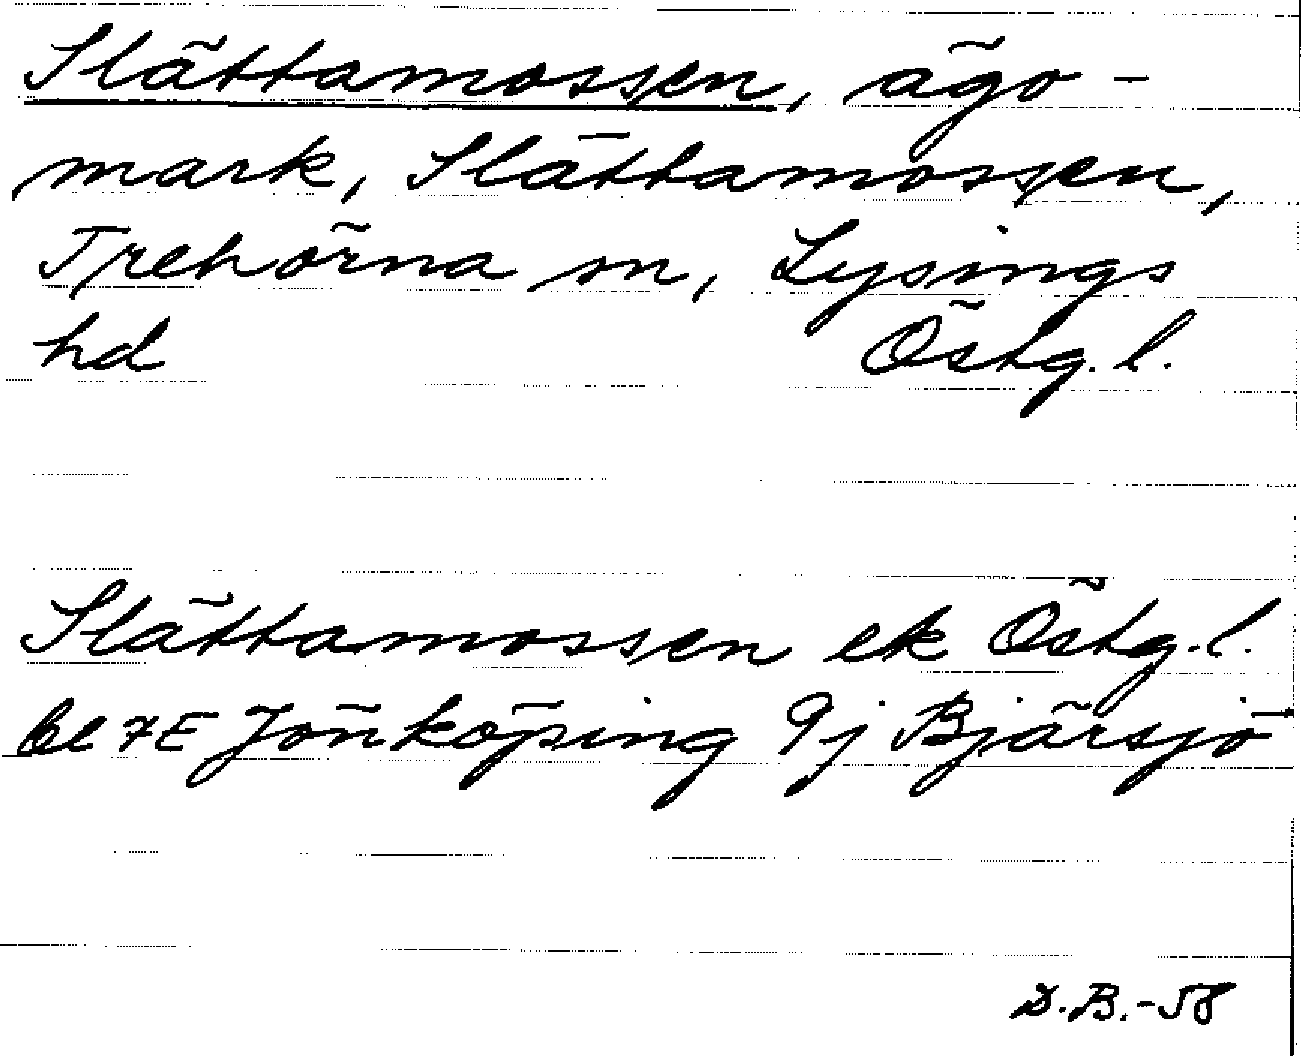 Slättamossen, ägo-
mark, Slättamossen,
Trehörna sn, Lysings
hd Östg. l.
Slättamossen ek Östg. l.
bl 7E Jönköping 9j Bjärsjö
D.B.-58